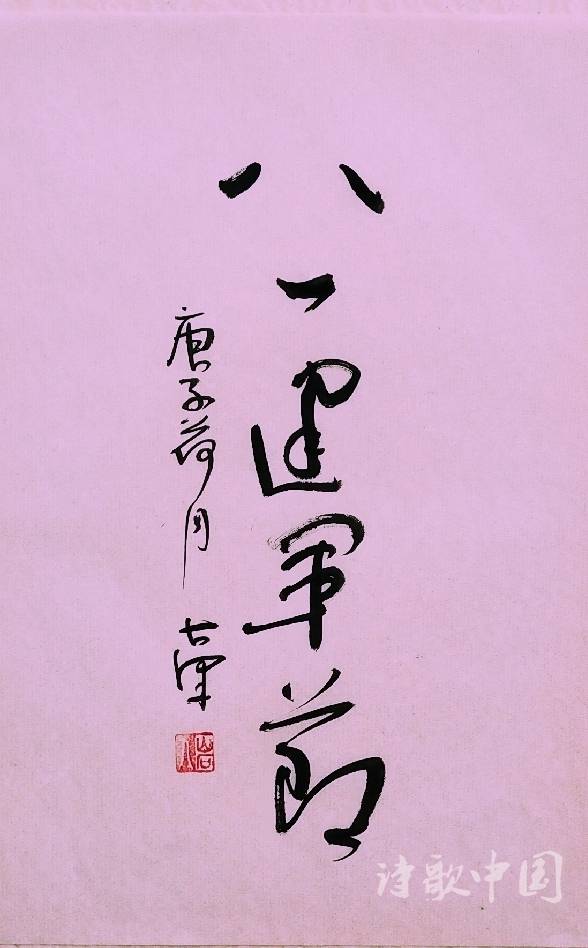 八一建军节
庚子荷月
诗歌中国